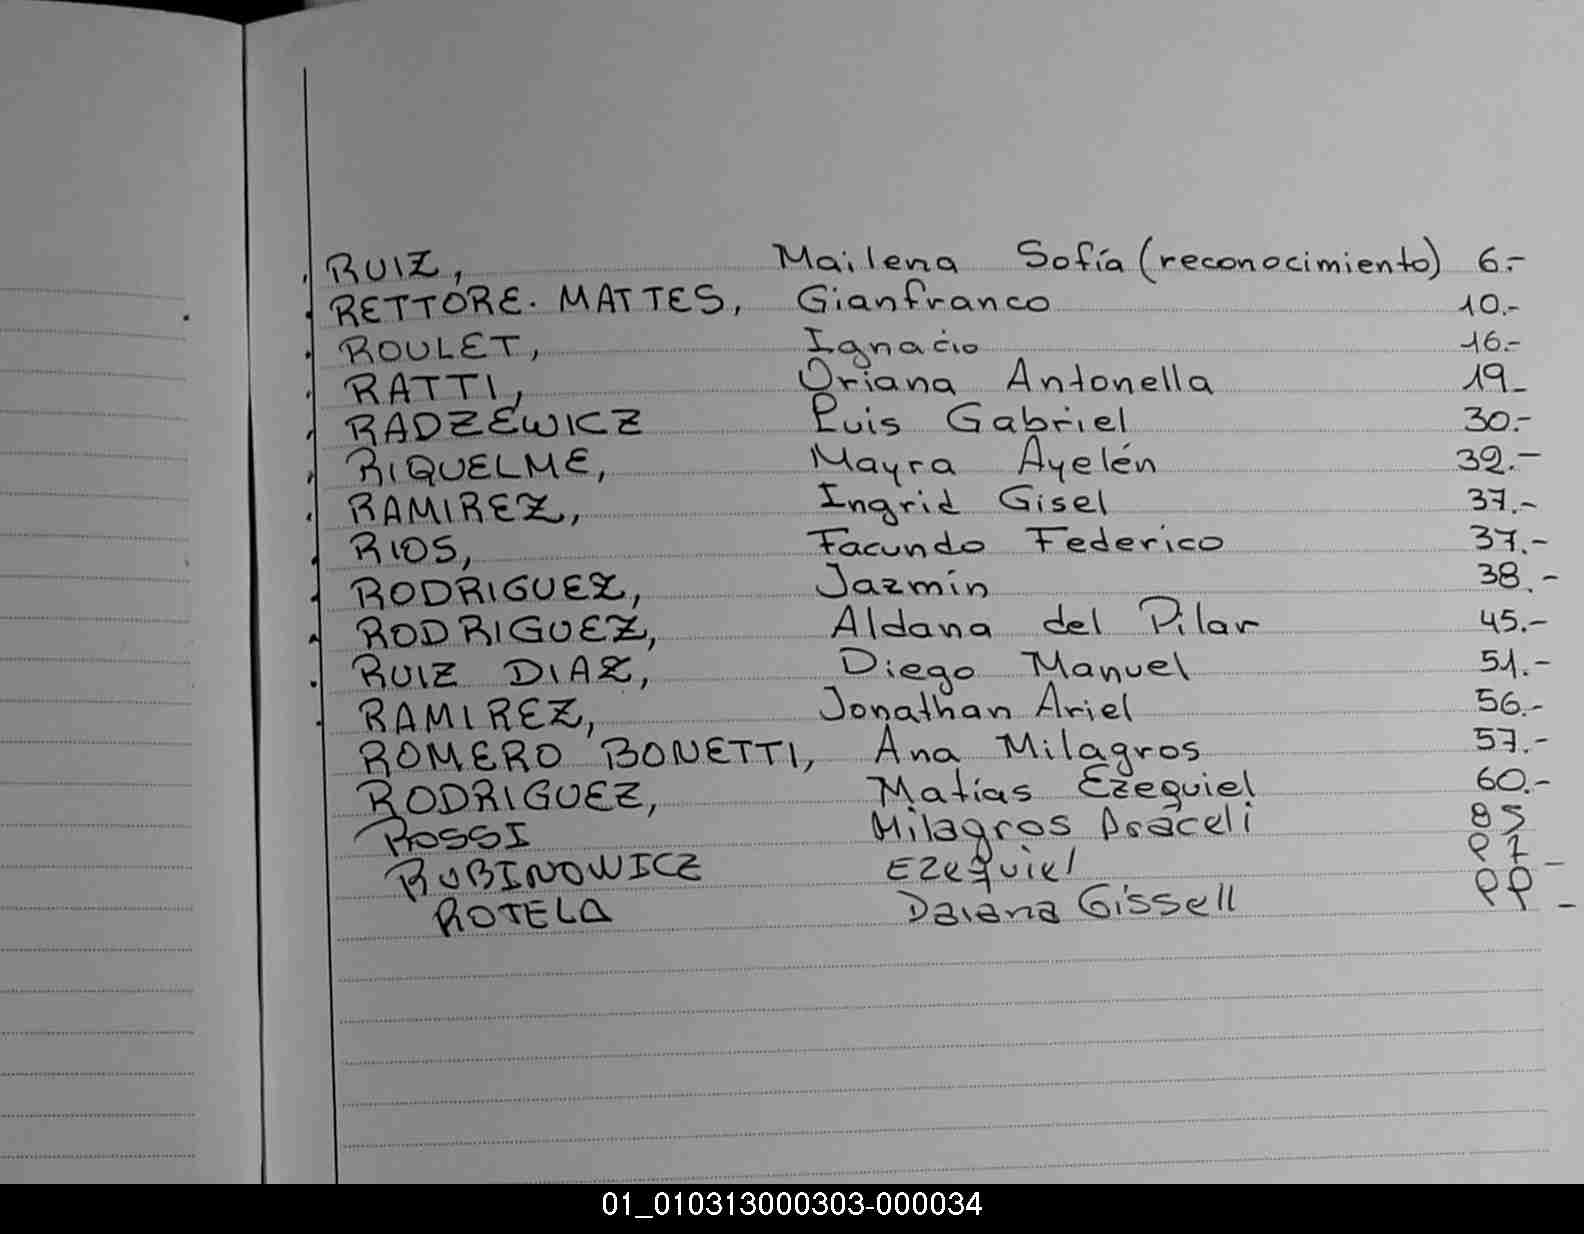 RUIZ, Mailena Sofía (reconocimiento) 6.-
RETTORE. MATTES, Gianfranco 10.-
ROULET, Ignacio 16.-
RATTI, Oriana Antonella 19-
RADZEWICZ Luis Gabriel 30.-
RIQUELME, Mayra Ayelén 32.-
RAMIREZ, Ingrid Gisel 37.-
RIOS, Facundo Federico 37.-
RODRIGUEZ, Jazmín 38.-
RODRIGUEZ, Aldana del Pilar 45.-
RUIZ DIAZ, Diego Manuel 51.-
RAMIREZ, Jonathan Ariel 56.-
ROMERO BONETTI, Ana Milagros 57.-
RODRIGUEZ, Matías Ezequiel 60.-
ROSSI Milagros Araceli 85
RUBINOWICZ Ezequiel
ROTELA Daiana Gissell
01_010313000303-000034